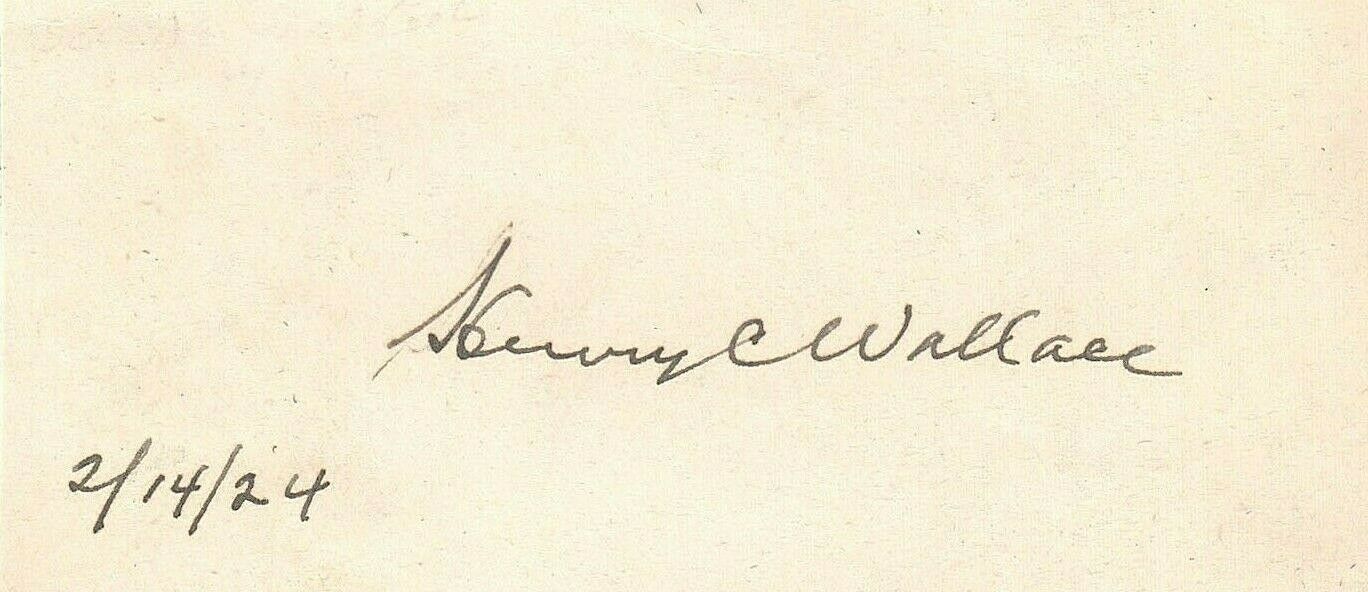 Henry C Wallace
2/14/24